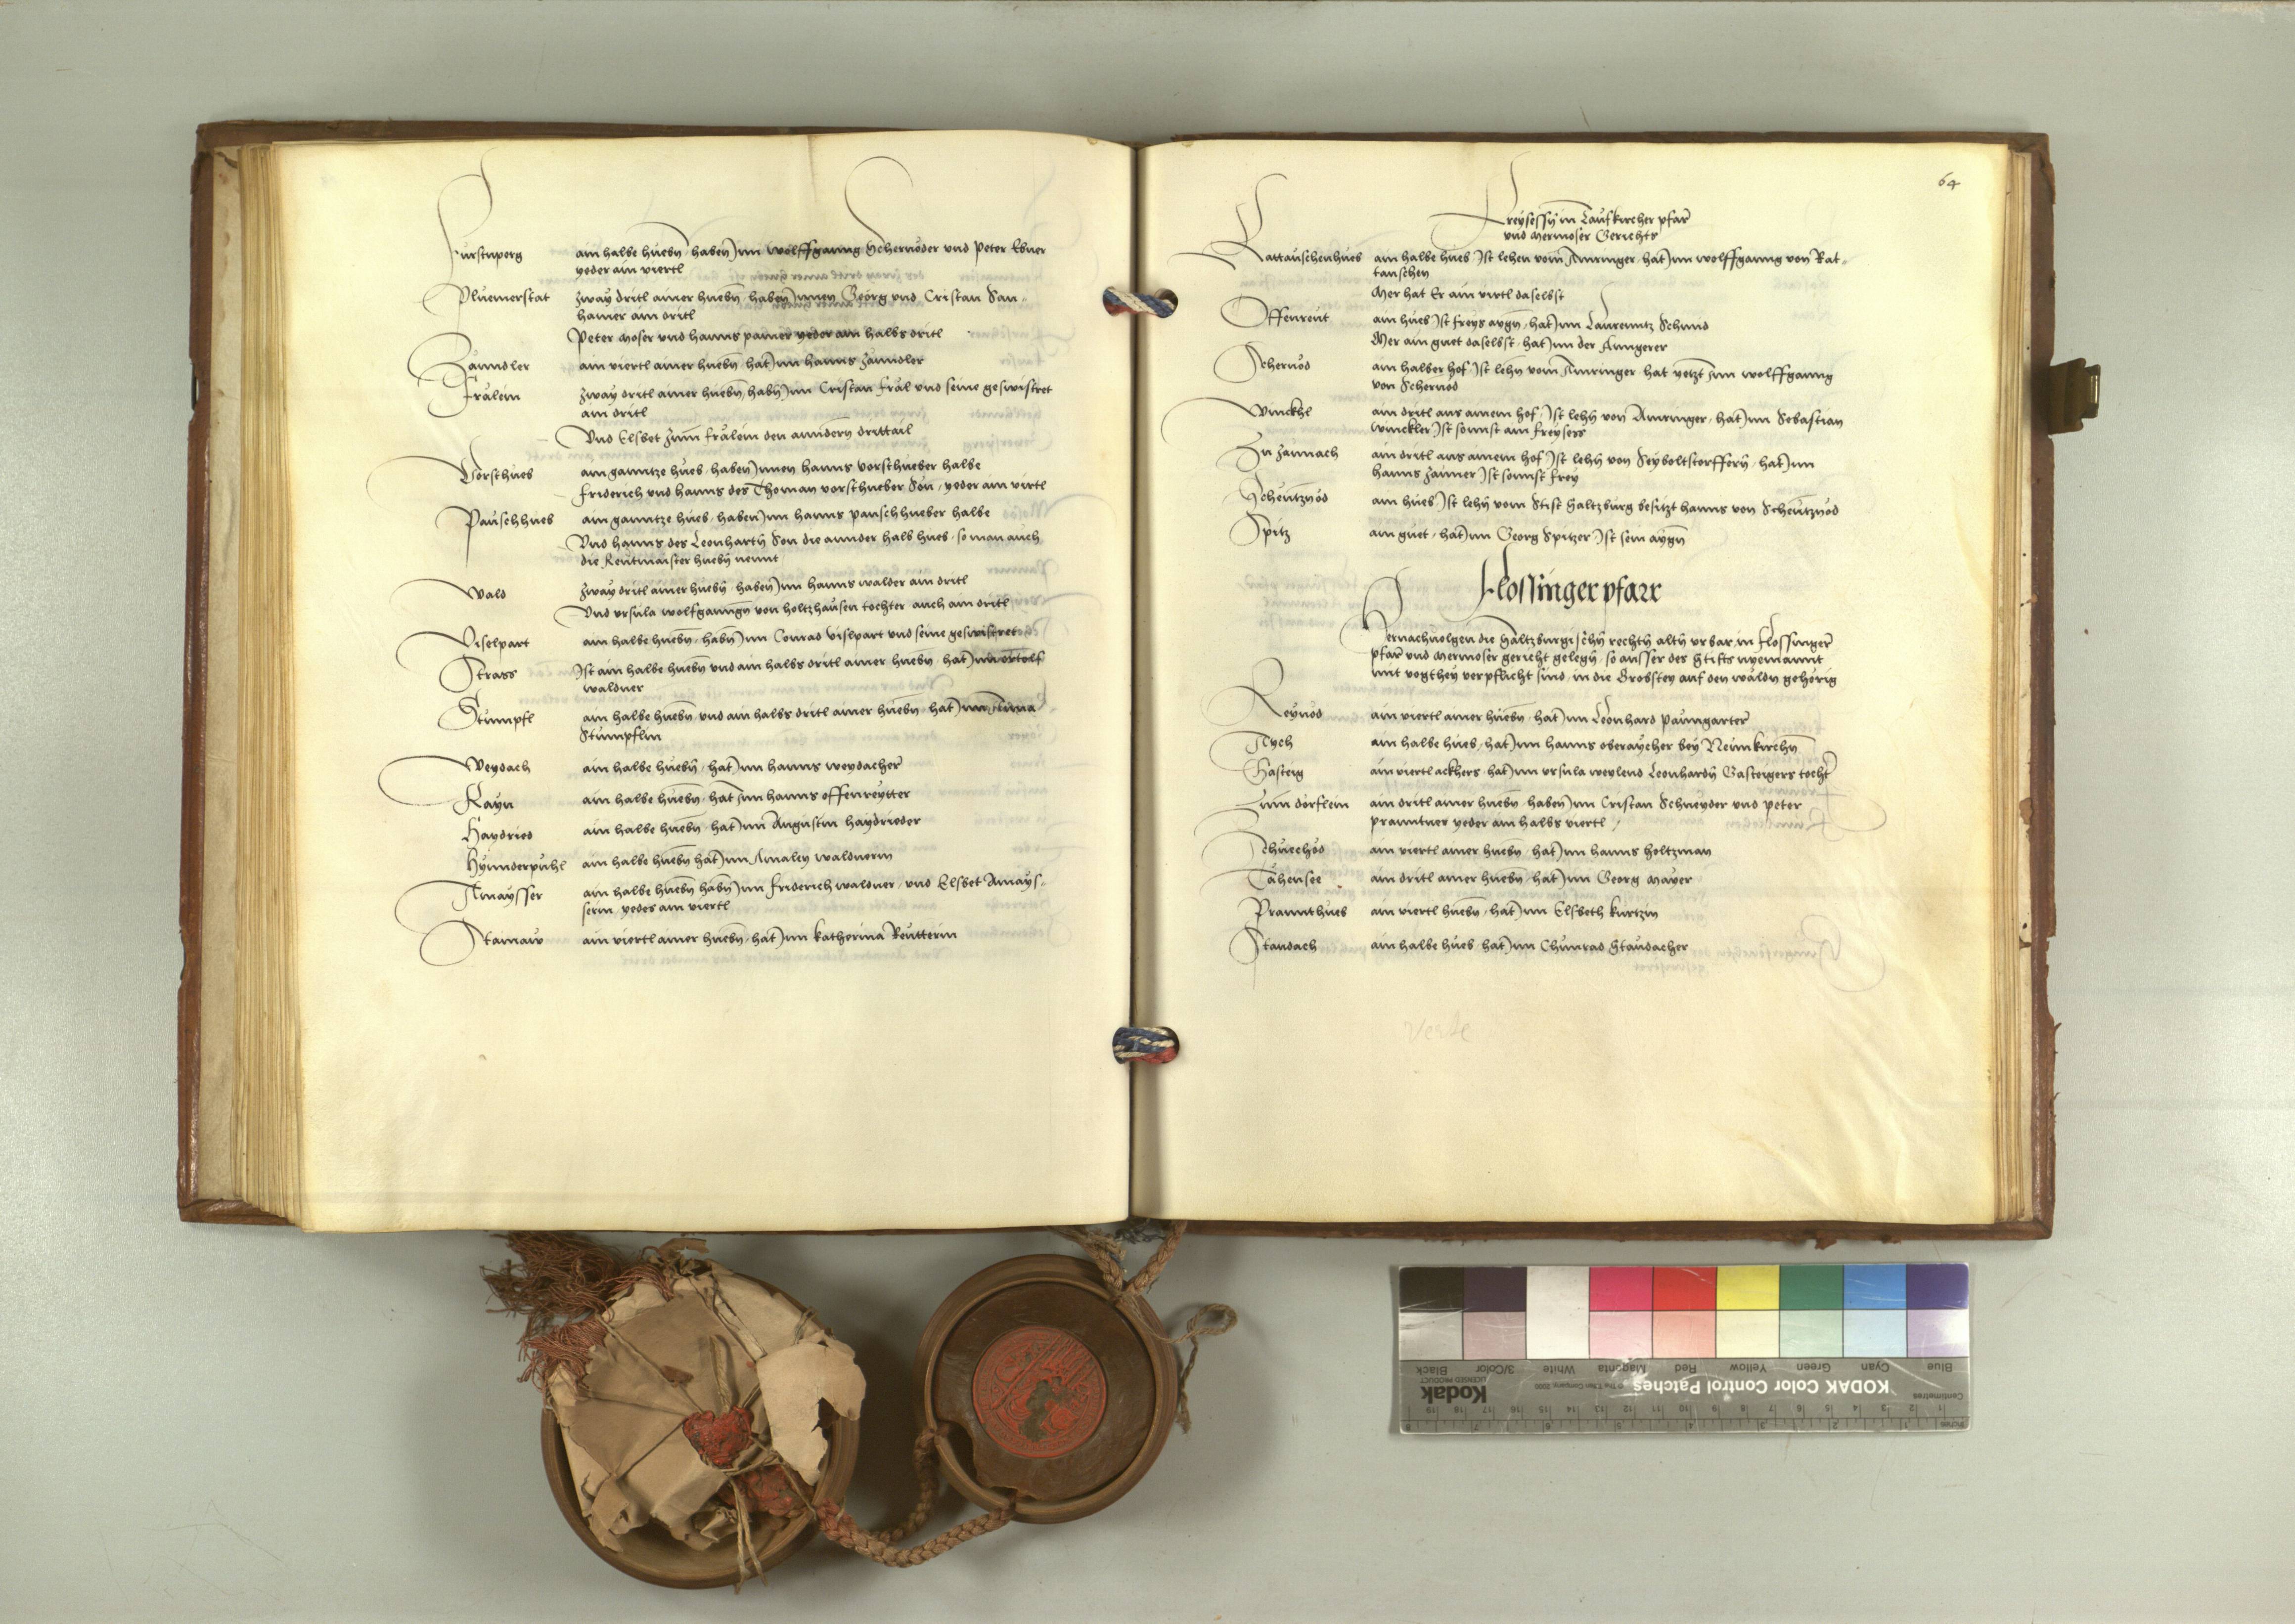 Fürstnperg ain halbe huebñ haben Inn Wolffganng Schernöder und Peter Ebner
yeder ain viertl
Pluemerstat zway dritl ainer huebñ haben Innen Georg und Cristan San=
hamer ain dritl
Peter Moser und hanns pamer yeder ain halbs dritl
Zänndler ain viertl ainer huebñ hat Inn hanns Zänndler
Frälein zway dritl ainer huebñ habñ Inn Cristan Fräl und seine geswistret
ain dritl
Und Elsbet zum Frälein den anndern drittail
Vorschueb ain ganntze hueb haben Innen hanns vorschueber halbe
Friderich und hanns des Thoman vorschueber Sön yeder ain virtl
Pauschhueb ain ganntze hueb haben Inn hanns pauschhueber halbe
Und hanns des Leonhartñ Son die annder halb hueb so man auch
die Rentmaister huebñ nennt
Wald zway dritl ainer huebñ haben Inn hanns walder ain dritl
Und ursula wolfganngñ von holtzhausen tochter auch ain dritl
Viselpart ain halbe huebñ habñ Inn Conrad Vislpart und seine geswistret
Strass Ist ain halbe huebñ und ain halbs dritl ainer huebñ hat Inn ortolf
waldner
Stumpfl ain halbe huebñ und ain halbs dritl ainer huebñ hat Inn Anna
Stumpflin
Weydach ain halbe huebñ hat Inn hanns weydacher
Rayn ain halbe huebñ hat Inn hanns offenreytter
Haydried ain halbe huebñ hat Inn Augustin haydrieder
Hynnderpuhl ain halbe huebñ hat Inn Amaley waldnerin
Amaysser ain halbe huebñ habñ Inn Friderich waldner und Elsbet Amays=
serin yedes ain viertl
Stainaw ain viertl ainer huebñ hat Inn katherina Reutterin
64
Freysessñ in Taufkircher pfarr
und Mermoser Gerichts
Rattauschenhueb ain halbe hueb Ist lehen vom Amringer hat Inn wolffganng von Rat=
tauschen
Mer hat Er ain virtl daselbst
Offenreut ain hueb Ist freys aygñ hat Inn Laurenntz Schmid
Mer ain guet daselbst hat Inn der Anngerer
Schernöd ain halber hof Ist lehñ vom Amringer hat yetzt Inn wolffganng
von Schernöd
Winckhl ain dritl aus ainem hof Ist lehñ von Amringer hat Inn Sebastian
winckler Ist sonnst ain freysess
Zu Zäunach ain dritl aus ainem hof Ist lehñ von Seyboltstorfferñ hat Inn
hanns Zäuner Ist sonnst frey
Scheutznöd ain hueb Ist lehñ vom Stift Saltzburg besitzt hanns von Scheutznöd
Spitz ain guet hat Inn Georg Spitzer Ist sein aygñ
Flossinger pfarr
Hernachvolgen die Saltzburgischñ rechtñ altñ urbar in Flossinger
pfarr und Mermoser gericht gelegñ so ausser des Stifts nyemannt
mit vogthey verpflicht sind in die Brobstey auf den wäldñ gehörig
Reynöd ain viertl ainer huebñ hat Inn Leonhard paumgarter
Aych ain halbe hueb hat Inn hanns oberaycher bey Neunkirchñ
Gasteig ain viertl ackhers hat Inn ursula weylend Leonhardñ Gasteigers tocht
Zum dörflein ain dritl ainer huebñ haben Inn Cristan Schneyder und peter
pranntner yeder ain halbs viertl
Schuechöd ain viertl ainer huebñ hat Inn hanns holtzman
Tähensee ain dritl ainer huebñ hat Inn Georg mayer
Prannthueb ain viertl huebñ hat Inn Elsbeth kurtzin
Staudach ain halbe hueb hat Inn Chunrad Staudacher
Verte
KODAK Color Control Patches
Kodak
LICENSED PRODUCT
Blue Cyan Green Yellow Red Magenta White 3/Color Black
Centimetres
Inches